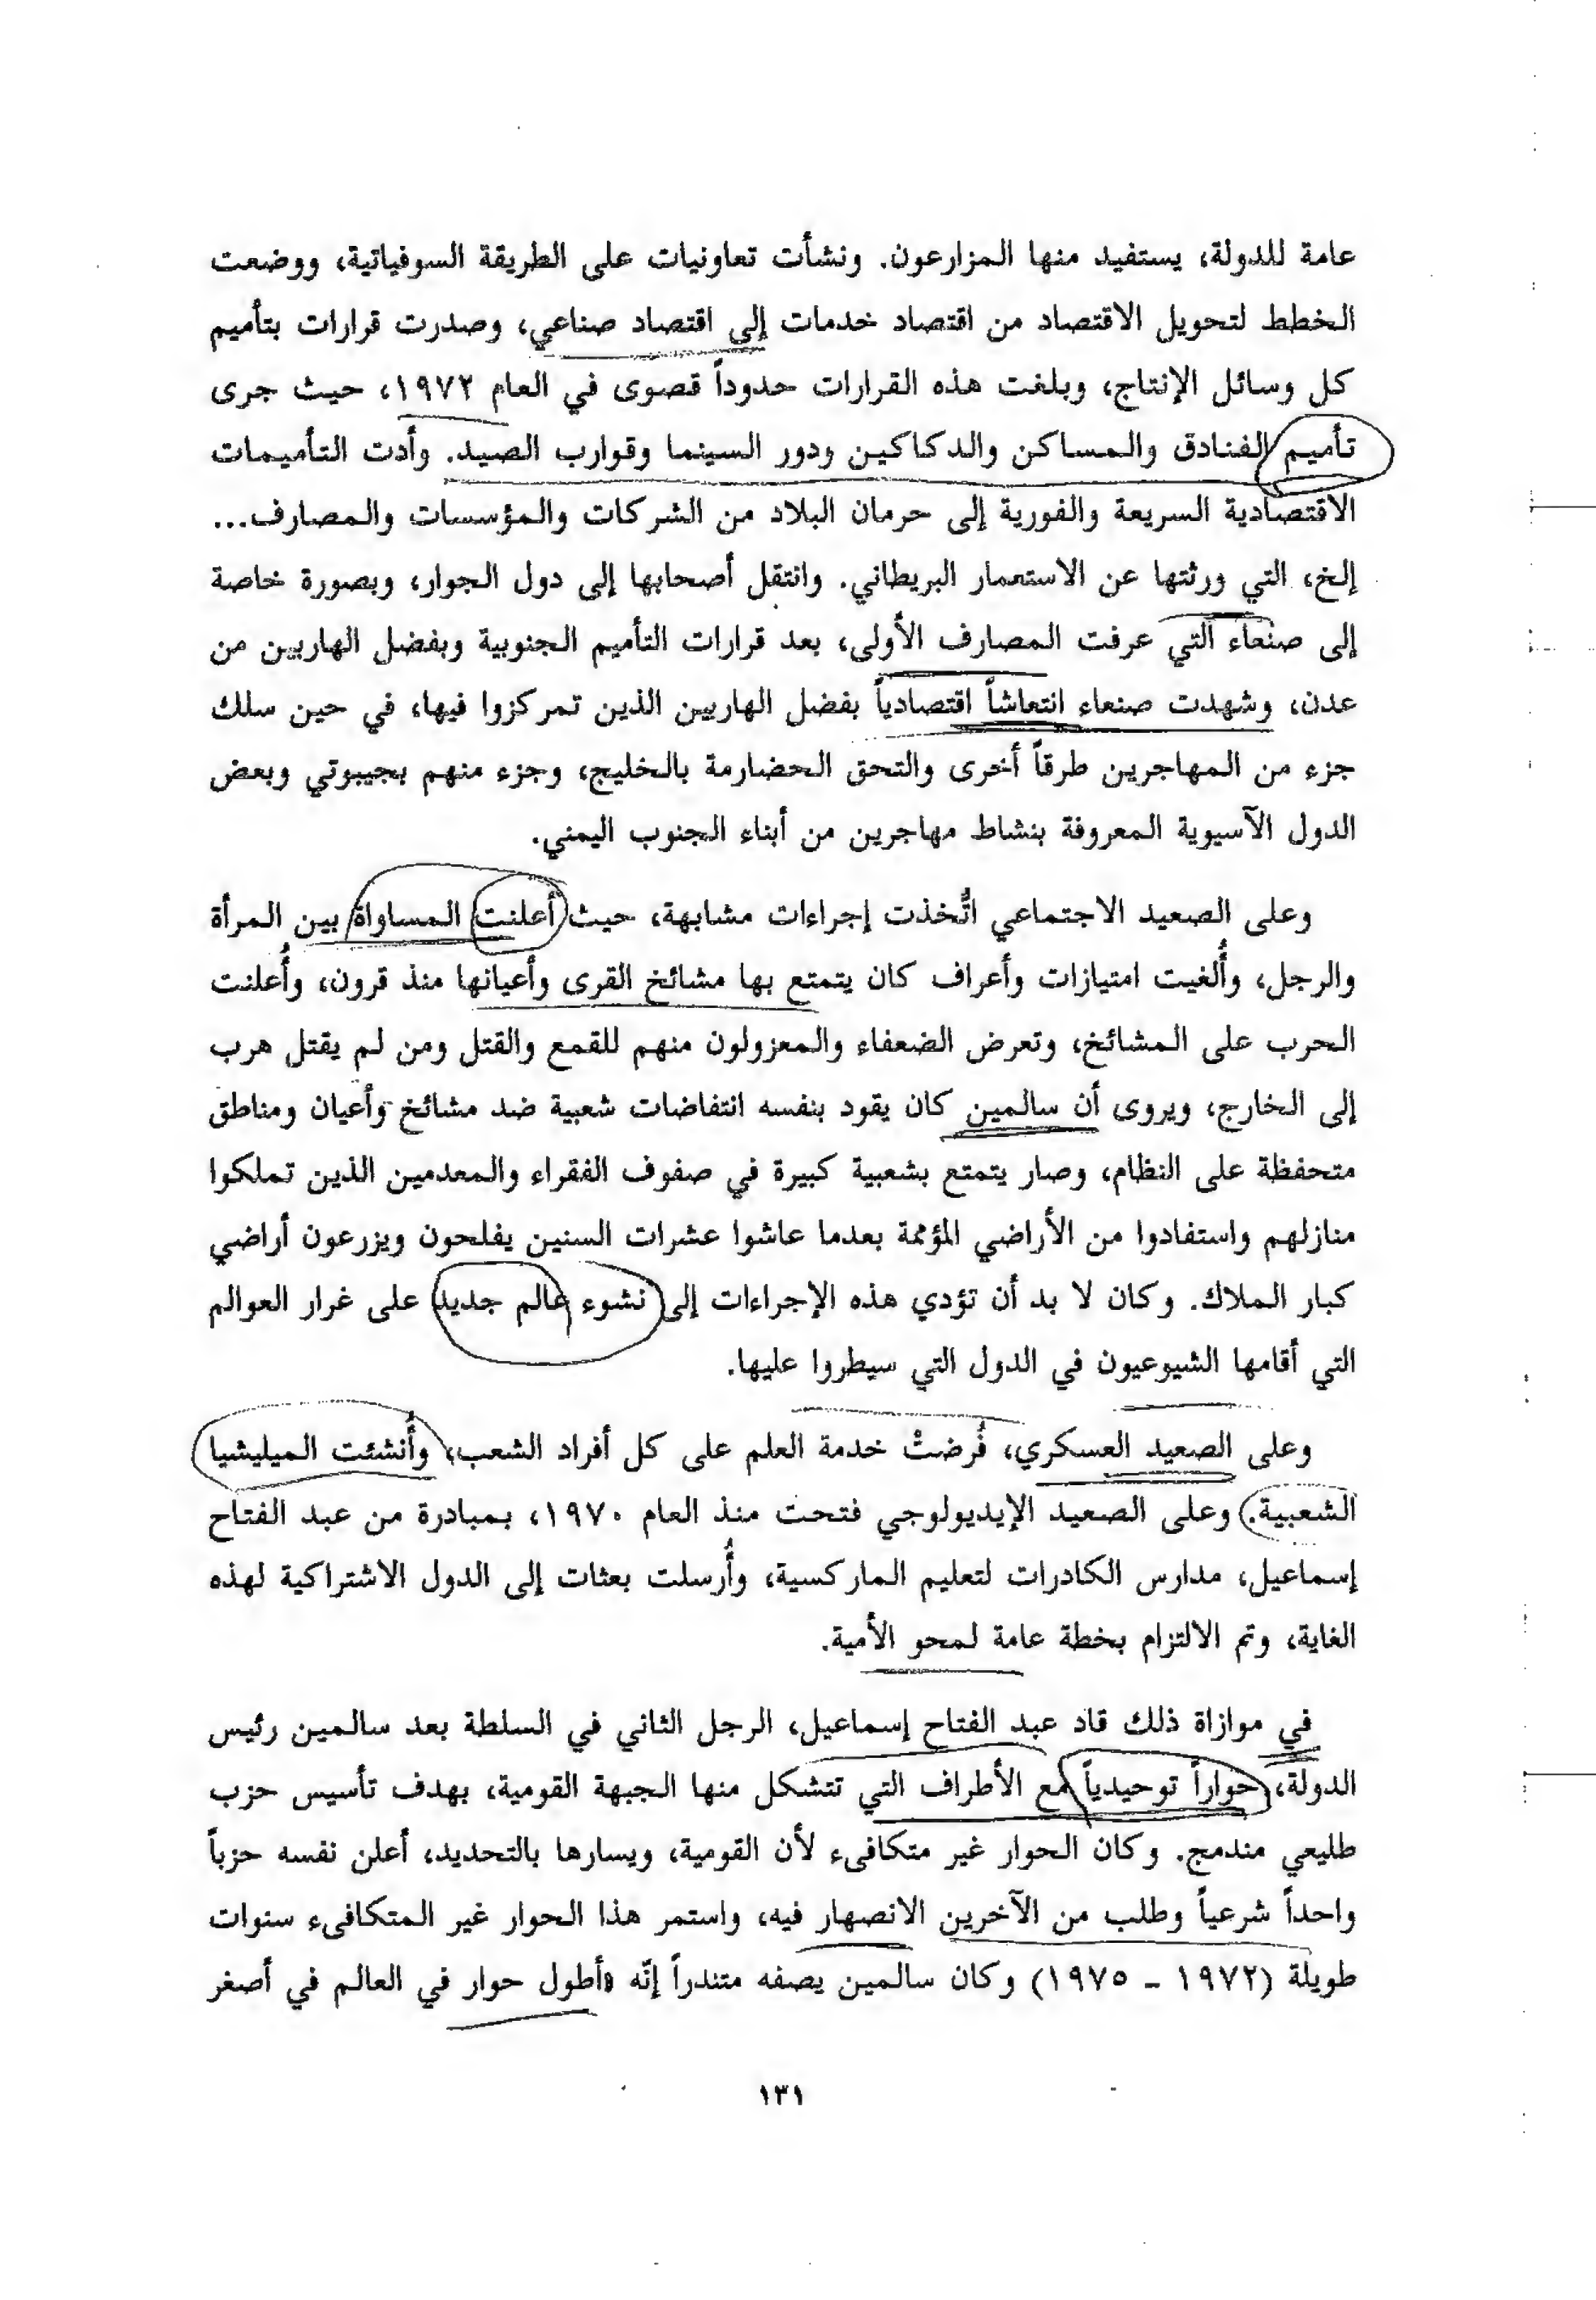 عامة للدولة، يستفيد منها المزارعون. ونشأت تعاونيات على الطريقة السوفياتية، ووضعت
الخطط لتحويل الاقتصاد من اقتصاد خدمات إلى اقتصاد صناعي، وصدرت قرارات بتأميم
كل وسائل الإنتاج، وبلغت هذه القرارات حدوداً قصوى في العام ١٩٧٢، حيث جرى
تأميم الفنادق والمساكن والدكاكين ودور السينما وقوارب الصيد. وأدت التأميمات
الاقتصادية السريعة والفورية إلى حرمان البلاد من الشركات والمؤسسات والمصارف...
إلخ، التي ورثتها عن الاستعمار البريطاني. وانتقل أصحابها إلى دول الجوار، وبصورة خاصة
إلى صنعاء التي عرفت المصارف الأولى، بعد قرارات التأميم الجنوبية وبفضل الهاربين من
عدن، وشهدت صنعاء انتعاشاً اقتصادياً بفضل الهاربين الذين تمركزوا فيها، في حين سلك
جزء من المهاجرين طرقاً أخرى والتحق الحضارمة بالخليج، وجزء منهم بجيبوتي وبعض
الدول الآسيوية المعروفة بنشاط مهاجرين من أبناء الجنوب اليمني.
وعلى الصعيد الاجتماعي اتُّخذت إجراءات مشابهة، حيث أعلنت المساواة بين المرأة
والرجل، وأُلغيت امتيازات وأعراف كان يتمتع بها مشائخ القرى وأعيانها منذ قرون، وأُعلنت
الحرب على المشائخ، وتعرض الضعفاء والمعزولون منهم للقمع والقتل ومن لم يقتل هرب
إلى الخارج، ويروى أن سالمين كان يقود بنفسه انتفاضات شعبية ضد مشائخ وأعيان ومناطق
متحفظة على النظام، وصار يتمتع بشعبية كبيرة في صفوف الفقراء والمعدمين الذين تملكوا
منازلهم واستفادوا من الأراضي المؤممة بعدما عاشوا عشرات السنين يفلحون ويزرعون أراضي
كبار الملاك. وكان لا بد أن تؤدي هذه الإجراءات إلى نشوء عالم جديد على غرار العوالم
التي أقامها الشيوعيون في الدول التي سيطروا عليها.
وعلى الصعيد العسكري، فُرضتْ خدمة العلم على كل أفراد الشعب، وأُنشئت الميليشيا
الشعبية. وعلى الصعيد الإيديولوجي فتحت منذ العام ١٩٧٠، بمبادرة من عبد الفتاح
إسماعيل، مدارس الكادرات لتعليم الماركسية، وأُرسلت بعثات إلى الدول الاشتراكية لهذه
الغاية، وتم الالتزام بخطة عامة لمحو الأمية.
في موازاة ذلك قاد عبد الفتاح إسماعيل، الرجل الثاني في السلطة بعد سالمين رئيس
الدولة، حواراً توحيدياً مع الأطراف التي تتشكل منها الجبهة القومية، بهدف تأسيس حزب
طليعي مندمج. وكان الحوار غير متكافىء لأن القومية، ويسارها بالتحديد، أعلن نفسه حزباً
واحداً شرعياً وطلب من الآخرين الانصهار فيه، واستمر هذا الحوار غير المتكافىء سنوات
طويلة (١٩٧٢ - ١٩٧٥) وكان سالمين يصفه متندراً إنّه «أطول حوار في العالم في أصغر
١٣١